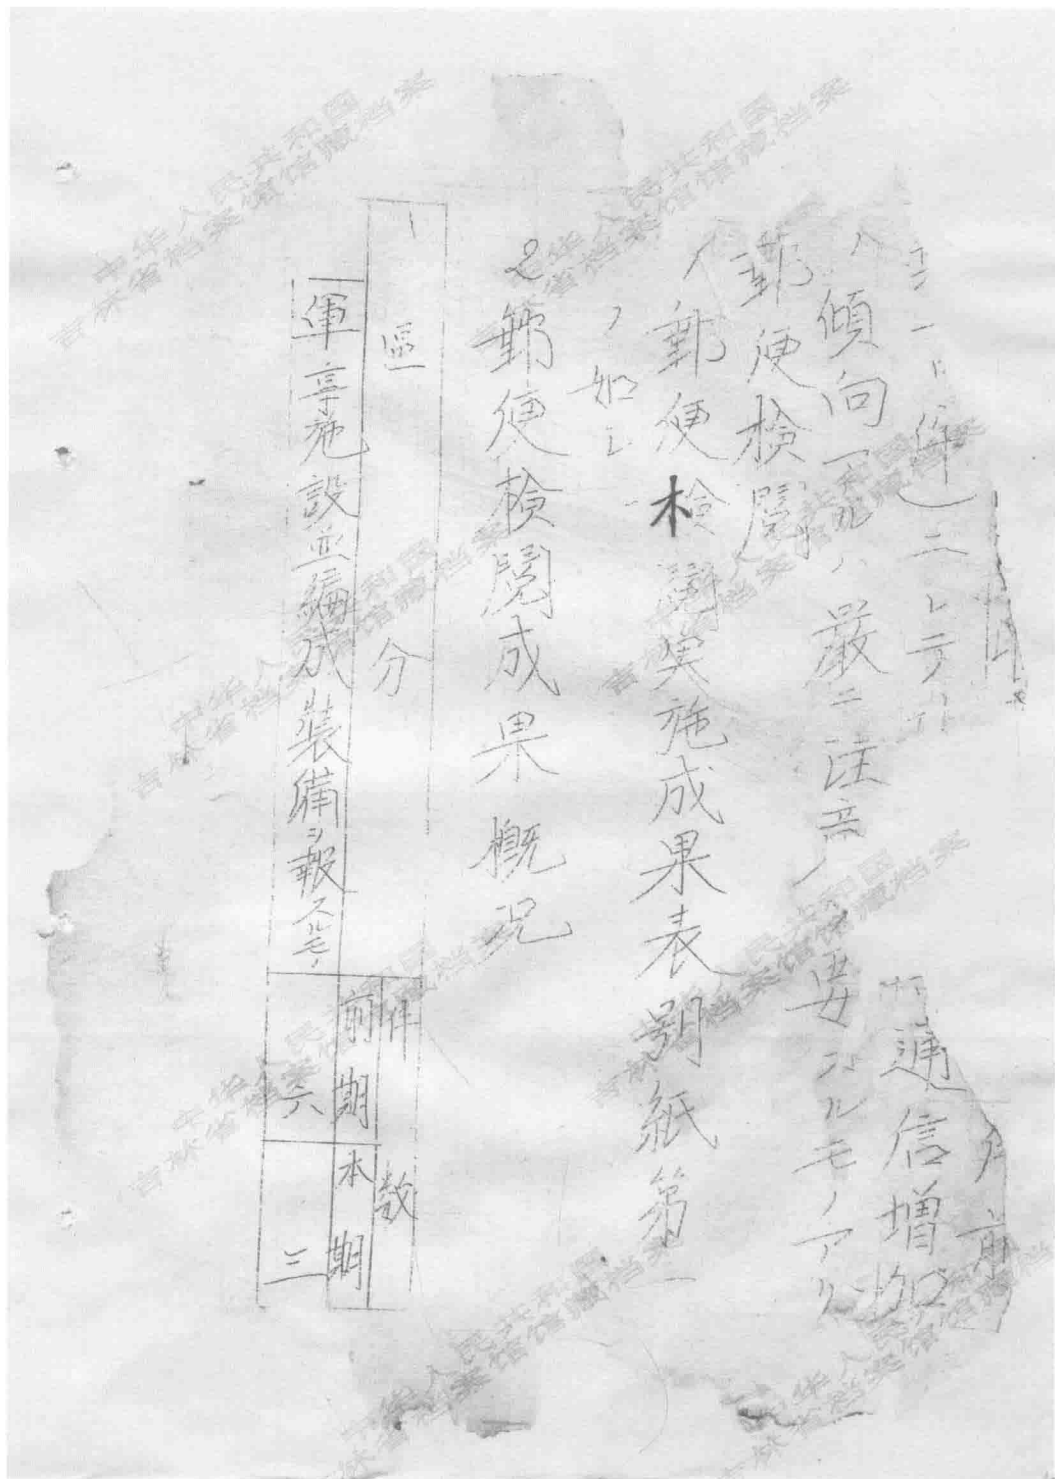 通信増加
傾向アルハ厳ニ注意ノ要アルモノアリ
郵便検閲
1郵便検閲実施成果表別紙第一
ノ如シ
2郵便検閲成果概況
區分
件数
前期
本期
軍事施設並編成装備ヲ報スルモノ
六
三
中华人民共和国
吉林省档案馆馆藏档案